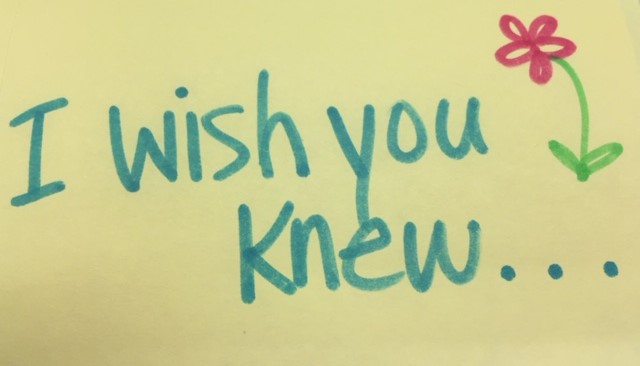 I wish you
knew...